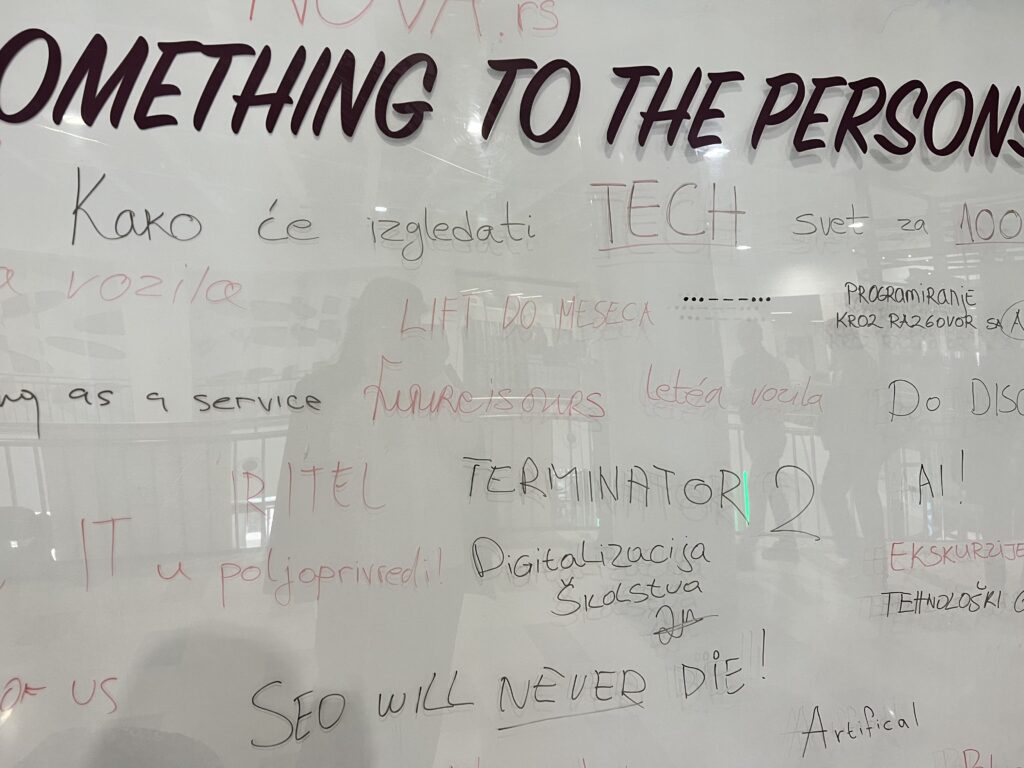 NOVA.rs
OMETHING TO THE PERSONS
Kako će izgledati TECH svet za 100
a vozila
LIFT DO MESECA
•••---•••
PROGRAMIRANJE
KROZ RAZGOVOR SA A
ng as a service
leteća vozila
Do DISC
IRITEL
TERMINATOR 2
AI!
IT u poljoprivredi!
Digitalizacija
Školstva
EKSKURZIJE
TEHNOLOŠKI
OF US
SEO WILL NEVER DIE!
Artifical